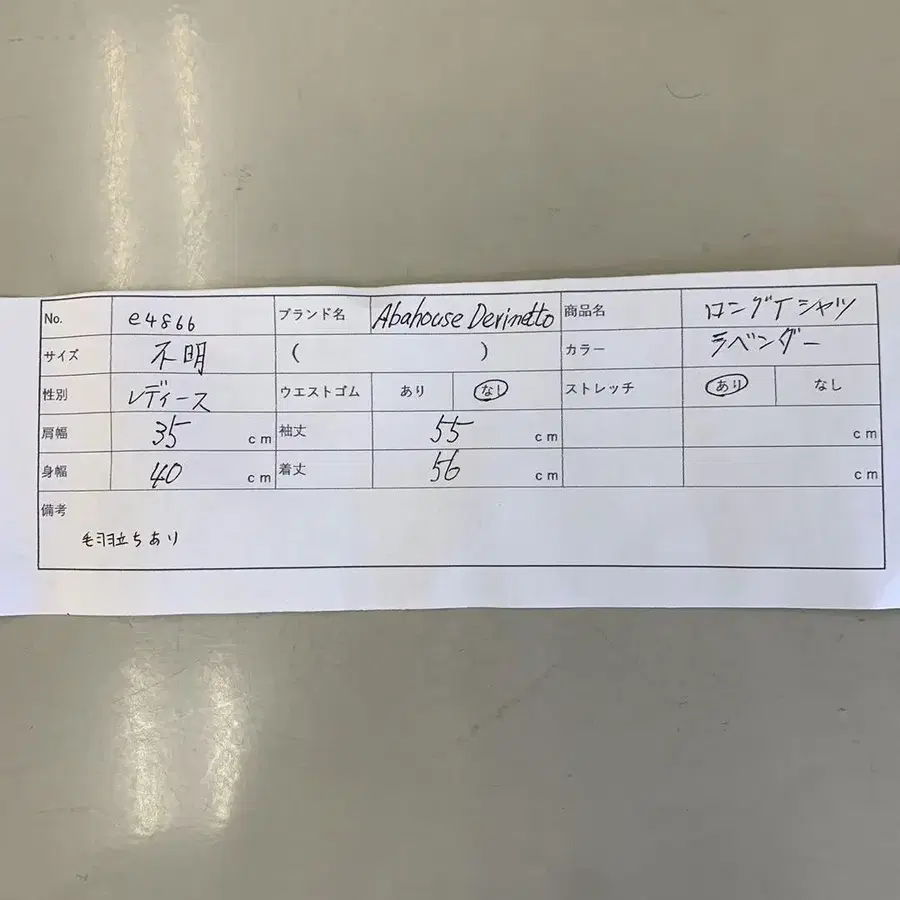 No. e4866 ブランド名 Abahouse Devinetto 商品名 ロングTシャツ
サイズ 不明 ( ) カラー ラベンダー
性別 レディース ウエストゴム あり なし ストレッチ あり なし
肩幅 35 cm 袖丈 55 cm cm
身幅 40 cm 着丈 56 cm cm
備考
毛羽立ちあり